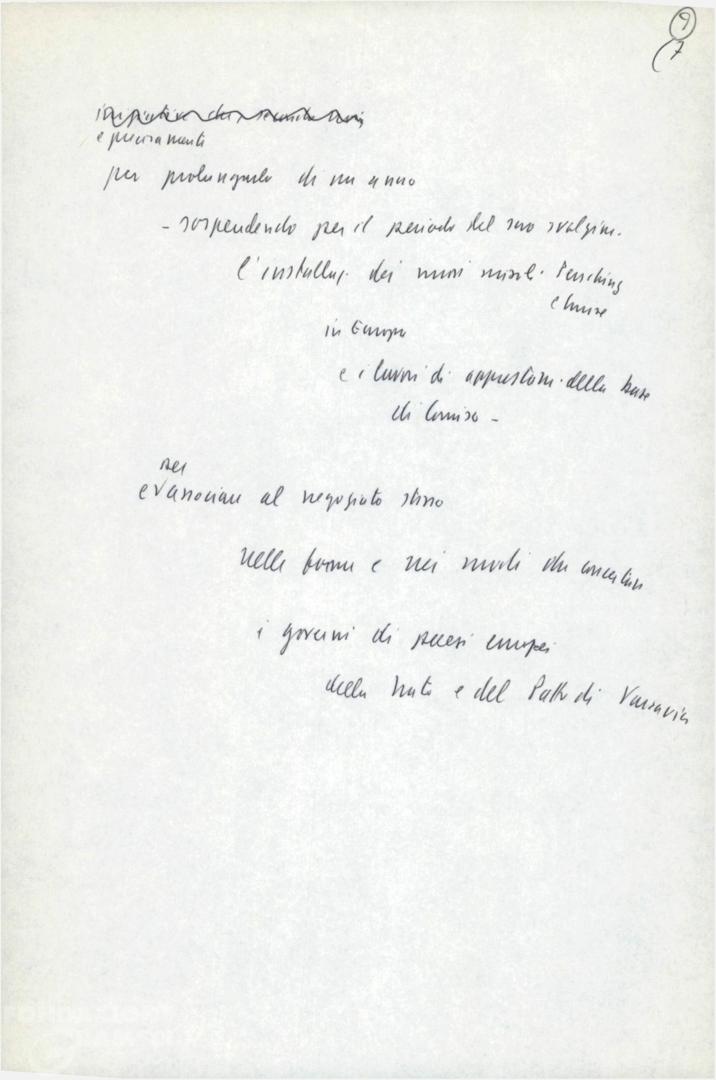 9
7
e precisamente
per prolungarlo di un anno
- sospendendo per il periodo del suo svolgim.
l'installaz. dei nuovi missili Pershing
e Cruise
in Europa
e i lavori di apprestam. della base
di Comiso -
per
e associare al negoziato stesso
nelle forme e nei modi da concertare
i governi di paesi europei
della Nato e del Patto di Varsavia